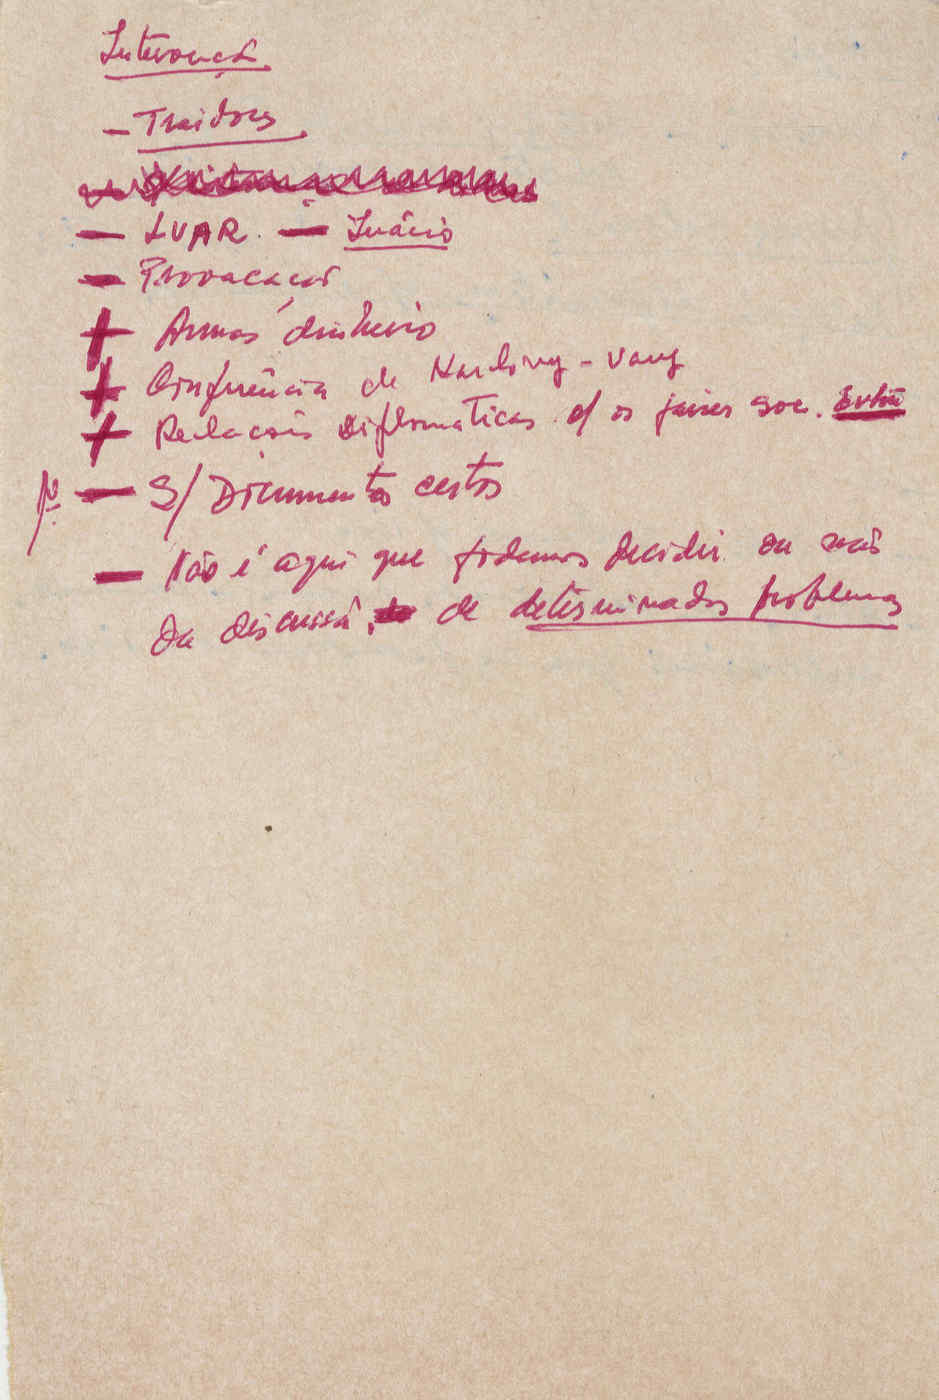 Intervenção
- Traidores
- LUAR. - Inácio
- Provocações
+ Armas dinheiro
+ Conferência de Karl-Marx
+ Relações Diplomáticas c/ os países soc.
- S/ Documentos certos
- Não é aqui que podemos decidir ou não
da discussão, de determinados problemas